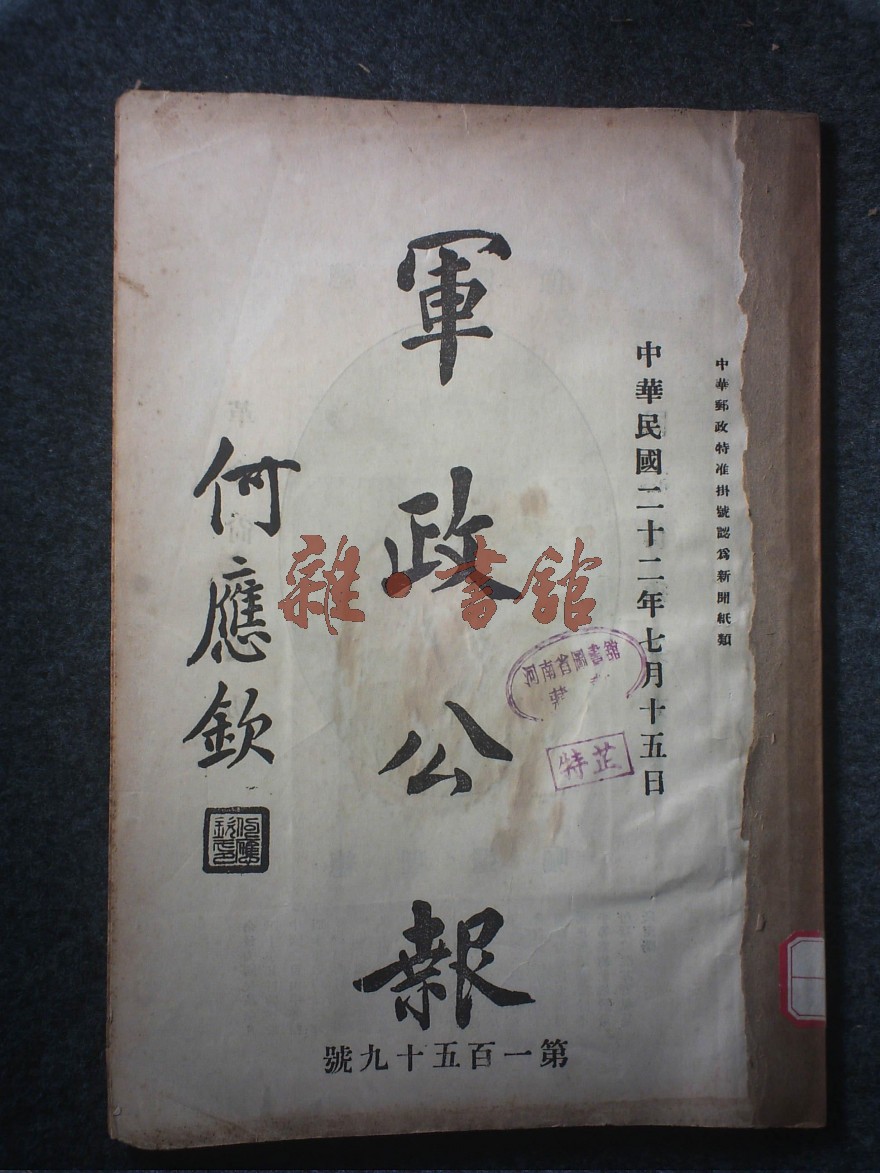 中華郵政特准掛號認爲新聞紙類
中華民國二十二年七月十五日
軍政公報
何應欽
第一百五十九號
雜·書館
河南省圖書館